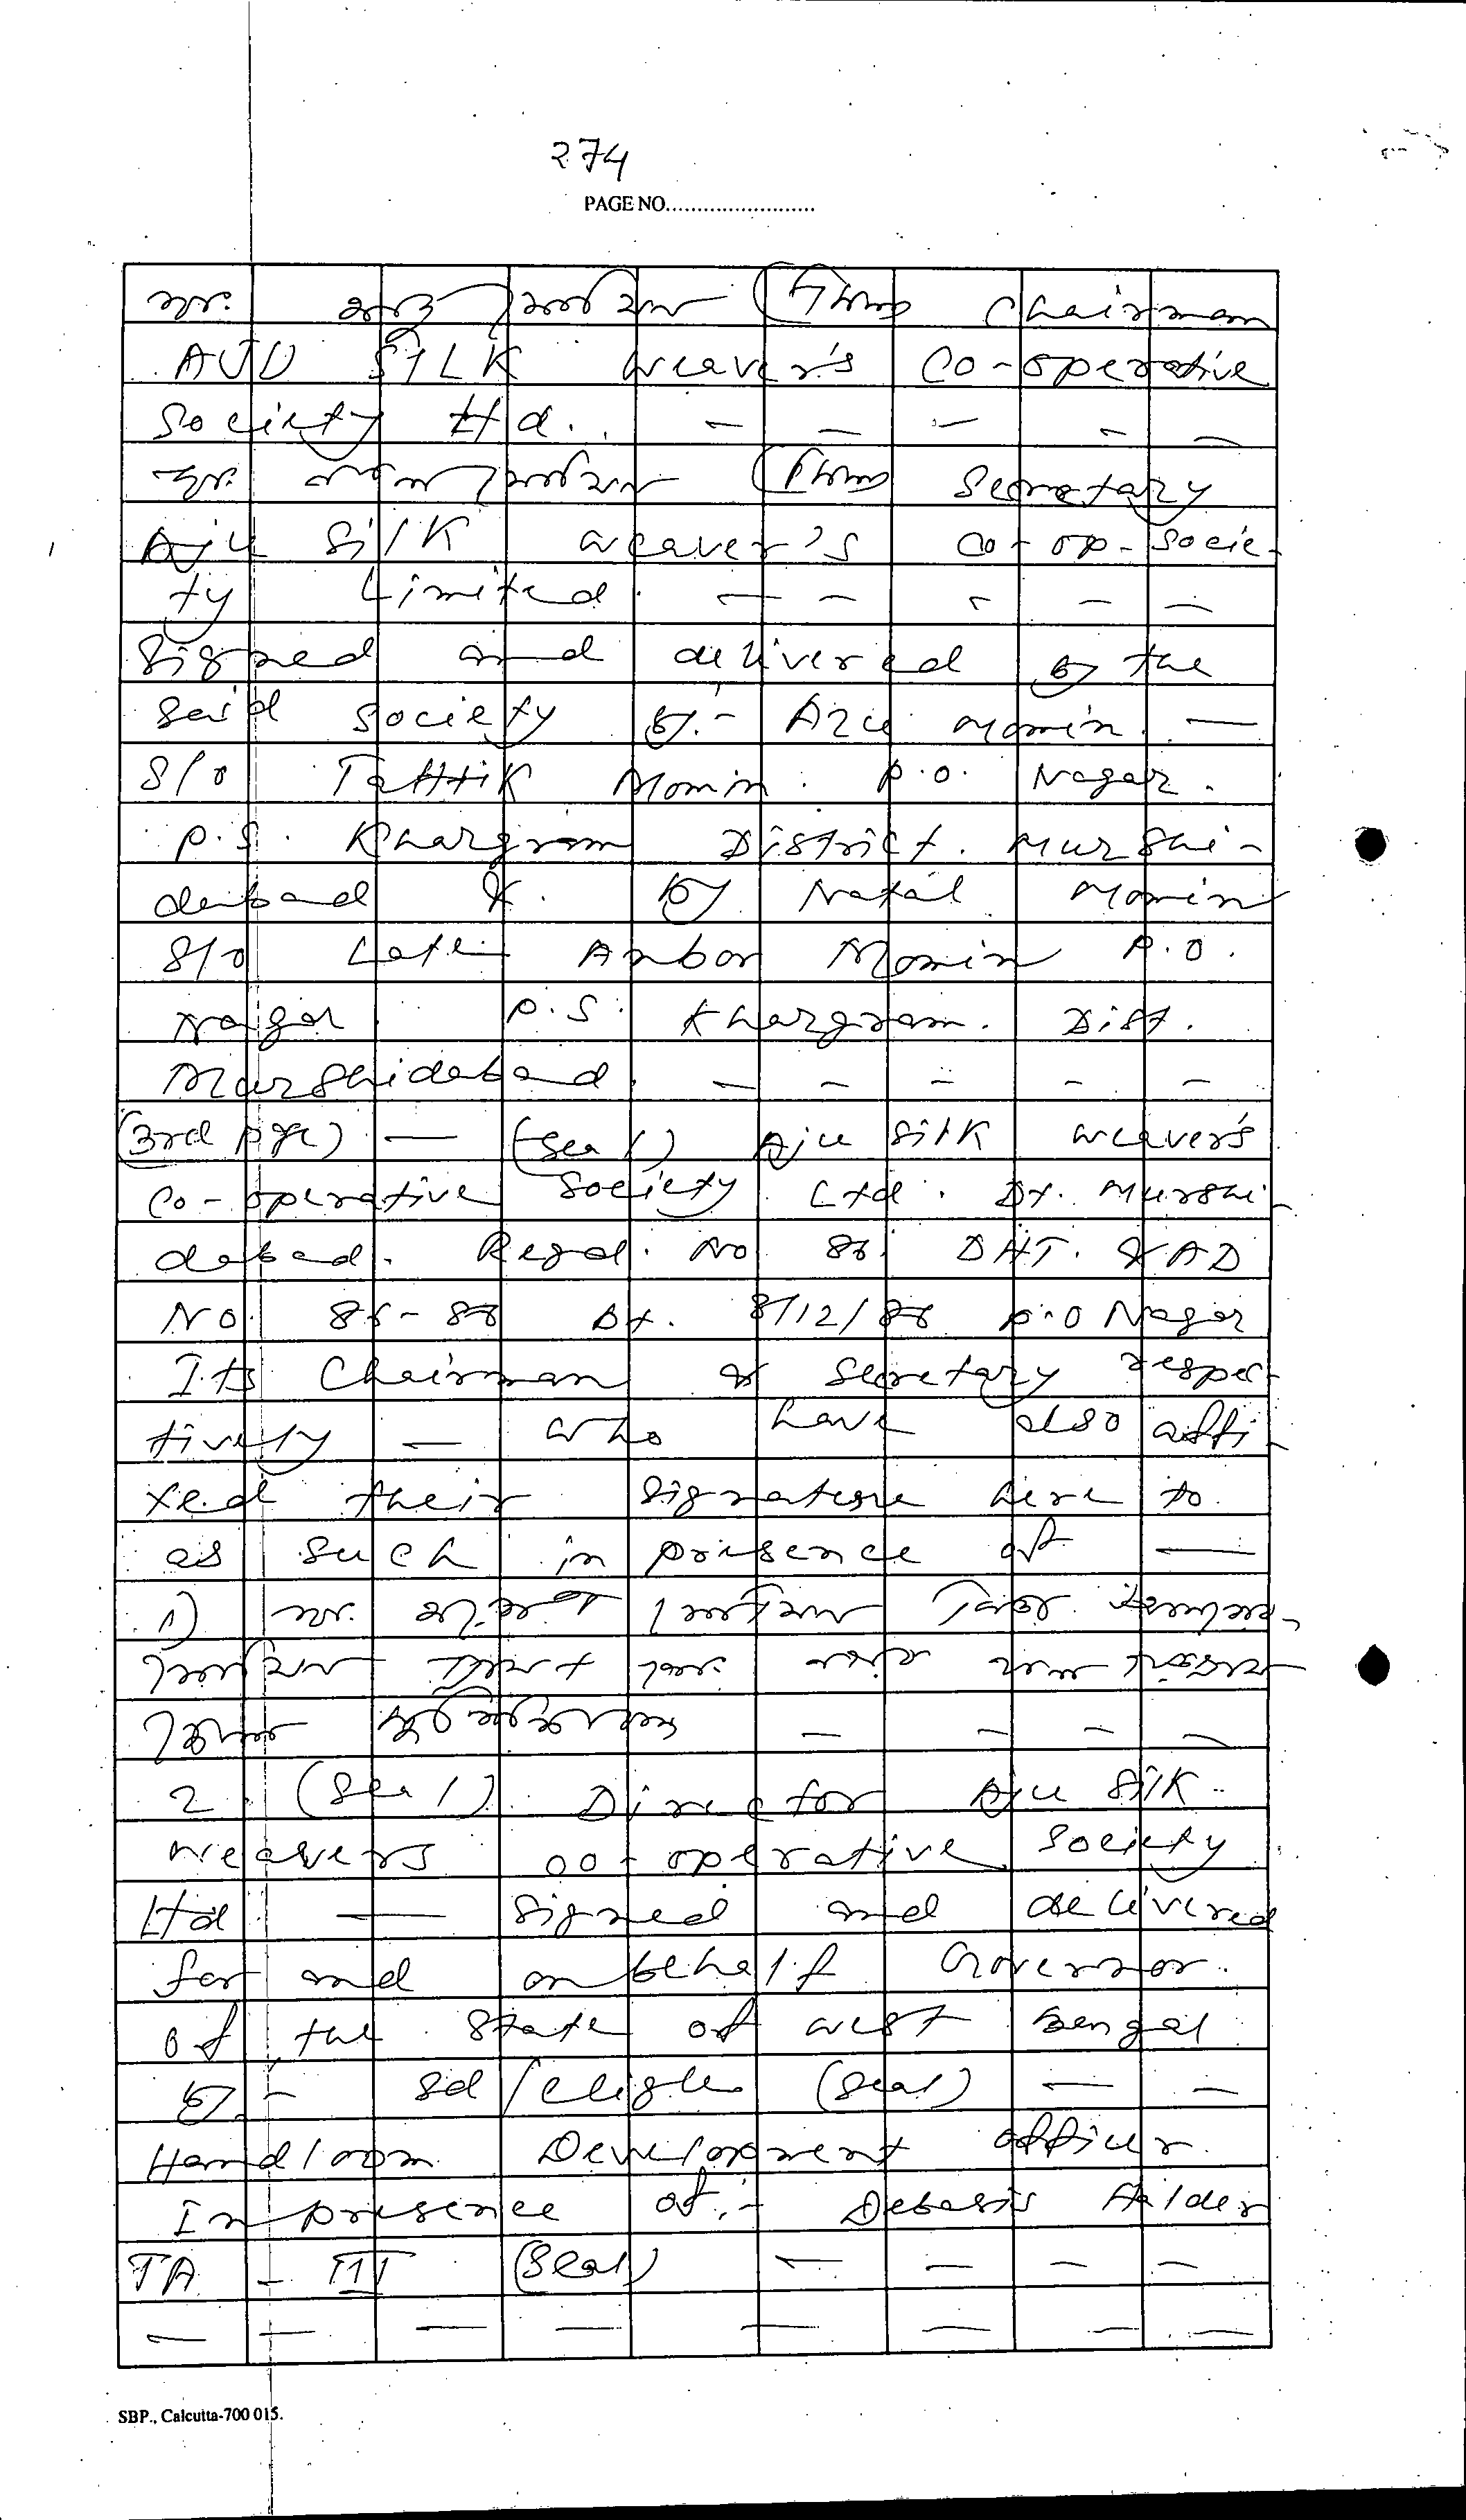 274
PAGE NO........................
স্বাঃ মোমিন Chairman
AJU SILK weaver's Co-operative
Society Ltd. . — — — — —
স্বাঃ মোমিন Secretary
Aju Silk weaver's Co-op-Socie-
ty Limited. — — - — —
Signed and delivered by the
said society by:- Azu Momin. —
S/o Momin. P.O. Nagar.
P.S. Khargram District. Murshi-
dabad &. by Natal Momin
S/o Late Anbar Momin P.O.
Nagar. P.S. Khargram. Dist.
Murshidabad. — — — — —
(3rd page) — (Seal) Aju Silk weaver's
Co-operative Society Ltd. Dt. Murshi-
dabad. Regd. No 86. DHT. & AD
No. Dt. P.O Nagar
Its Chairman & Secretary respec-
tively — who have also affi-
xed their signature here to
as such in presence of —
1) স্বাঃ
মোমিন
— — — —
2. (Seal) Director Aju Silk
weavers co-operative Society
Ltd — Signed and delivered
for and on behalf Governor.
of the State of West Bengal
by:- Sd/ (Seal) — —
Handloom Development officer.
In presence of:- Debasis Halder
TA - III (Seal) — — — —
— — — — — — — —
SBP., Calcutta-700 015.